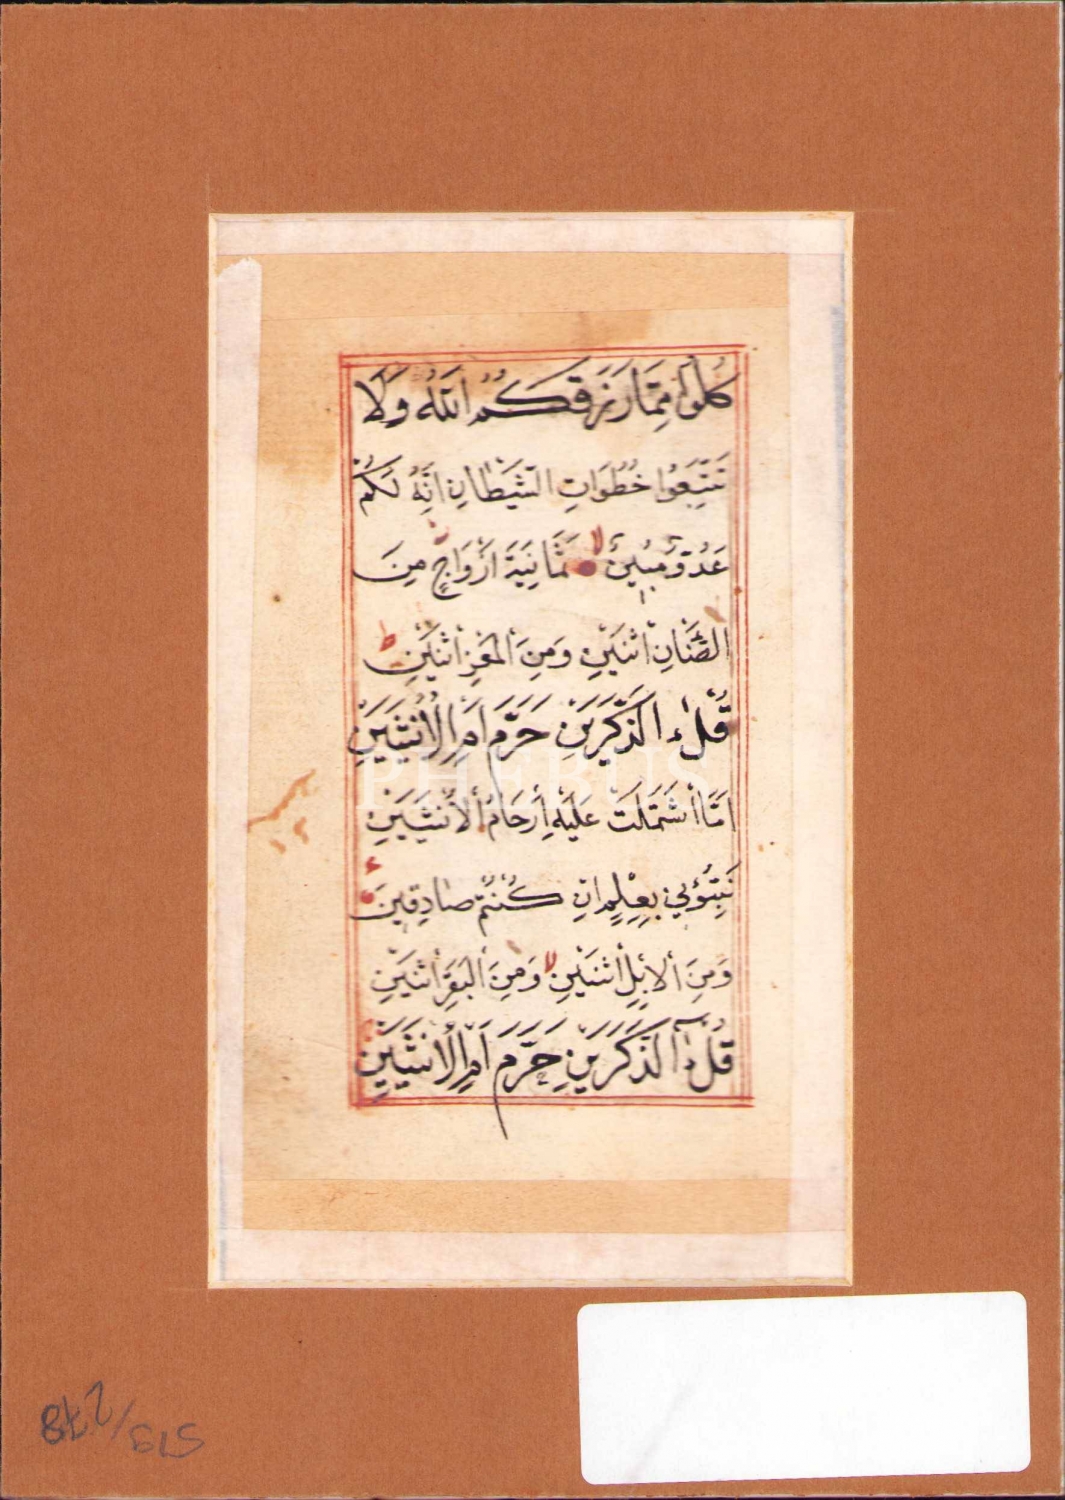 كُلُوا مِمَّا رَزَقَكُمُ اللّٰهُ وَلَا
تَتَّبِعُوا خُطُوَاتِ الشَّيْطَانِ اِنَّهُ لَكُمْ
عَدُوٌّ مُبِينٌ لا ثَمَانِيَةَ اَزْوَاجٍ مِنَ
الضَّأْنِ اثْنَيْنِ وَمِنَ الْمَعْزِ اثْنَيْنِ ط
قُلْ ءٰالذَّكَرَيْنِ حَرَّمَ اَمِ الْاُنْثَيَيْنِ
اَمَّا اشْتَمَلَتْ عَلَيْهِ اَرْحَامُ الْاُنْثَيَيْنِ
نَبِّئُونِي بِعِلْمٍ اِنْ كُنْتُمْ صَادِقِينَ
وَمِنَ الْاِبِلِ اثْنَيْنِ لا وَمِنَ الْبَقَرِ اثْنَيْنِ
قُلْ ءٰالذَّكَرَيْنِ حَرَّمَ اَمِ الْاُنْثَيَيْنِ
PHEBUS